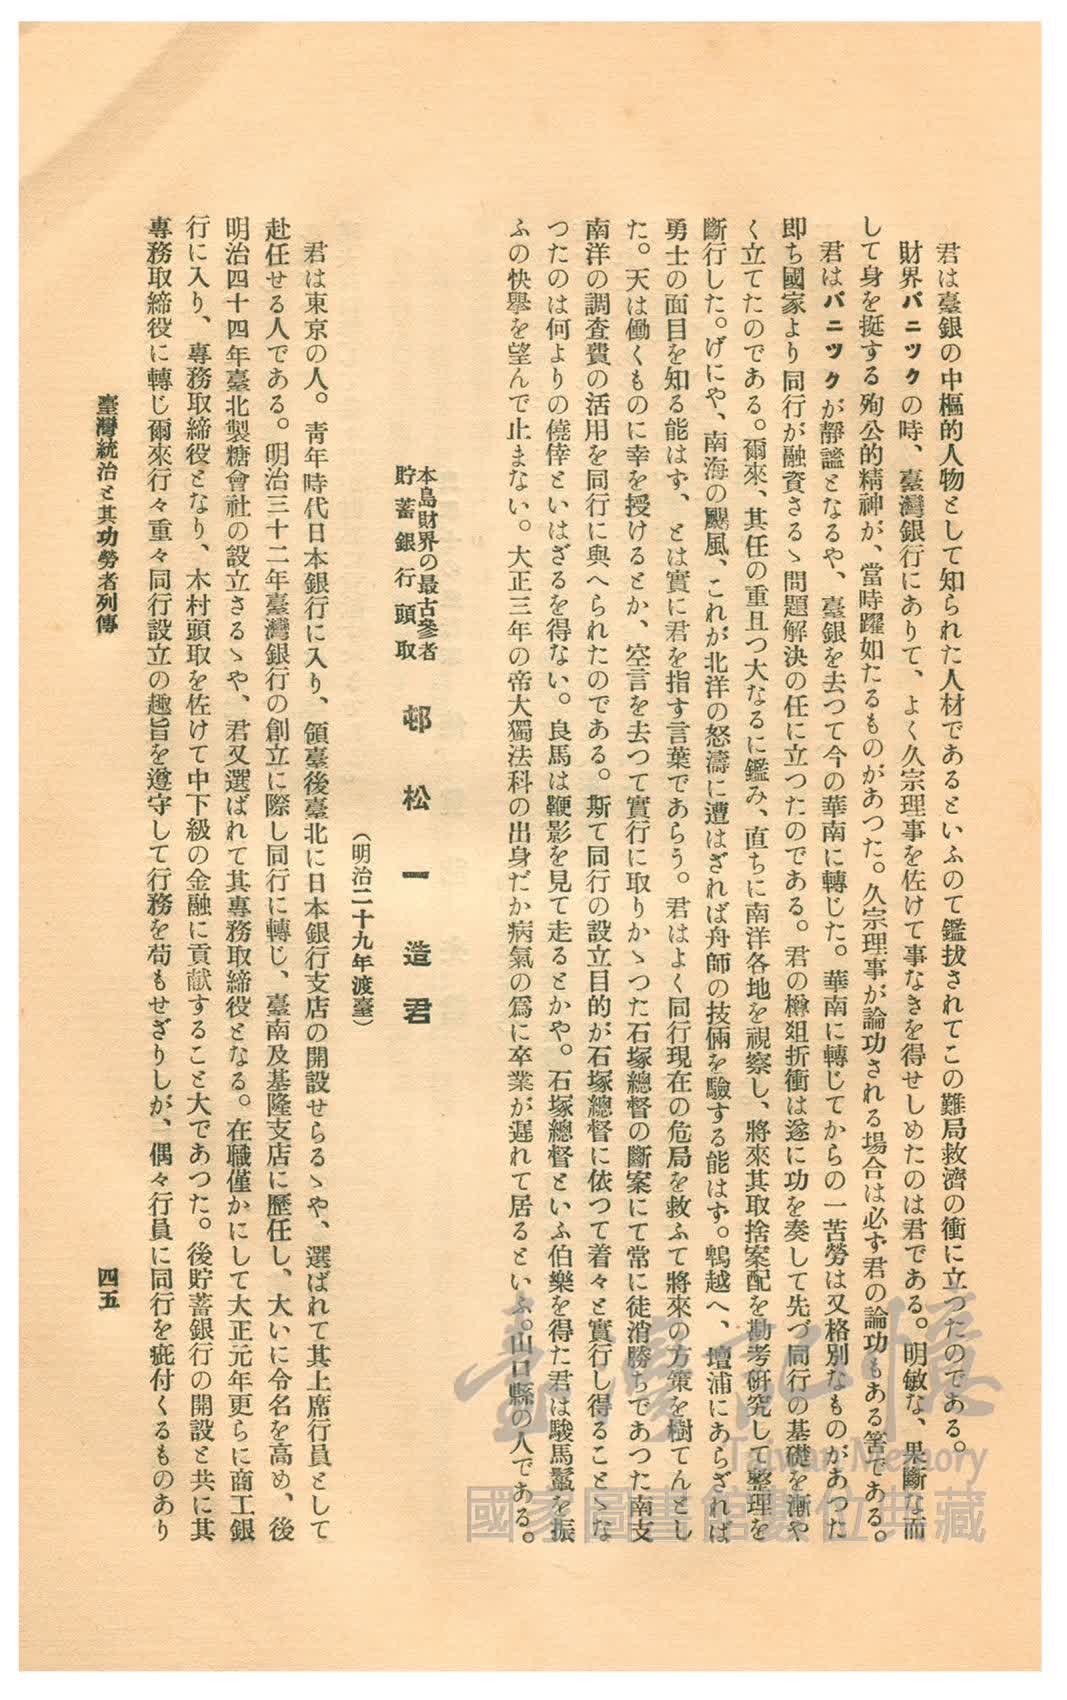 君は臺銀の中樞的人物として知られた人材であるといふので鑑拔されてこの難局救濟の衝に立つたのである。
財界パニックの時、臺灣銀行にありて、よく久宗理事を佐けて事なきを得せしめたのは君である。明敏な、果斷な而
して身を挺する殉公的精神が、當時躍如たるものがあつた。久宗理事が論功される場合は必ず君の論功もある筈である。
君はパニックが靜謐となるや、臺銀を去つて今の華南に轉じた。華南に轉じてからの一苦勞は又格別なものがあつた
即ち國家より同行が融資さるゝ問題解決の任に立つたのである。君の樽俎折衝は遂に功を奏して先づ同行の基礎を漸や
く立てたのである。爾來、其任の重且つ大なるに鑑み、直ちに南洋各地を視察し、將來其取捨案配を勘考硏究して整理を
斷行した。げにや、南海の颶風、これが北洋の怒濤に遭はざれば舟師の技倆を驗する能はず。鵯越へ、壇浦にあらざれば
勇士の面目を知る能はず、とは實に君を指す言葉であらう。君はよく同行現在の危局を救ふて將來の方策を樹てんとし
た。天は働くものに幸を授けるとか、空言を去つて實行に取りかゝつた石塚總督の斷案にて常に徒消勝ちであつた南支
南洋の調査費の活用を同行に與へられたのである。斯て同行の設立目的が石塚總督に依つて着々と實行し得ることゝな
つたのは何よりの僥倖といはざるを得ない。良馬は鞭影を見て走るとかや。石塚總督といふ伯樂を得た君は駿馬鬣を振
ふの快擧を望んで止まない。大正三年の帝大獨法科の出身だか病氣の爲に卒業が遲れて居るといふ。山口縣の人である。
本島財界の最古參者
貯蓄銀行頭取
邨松一造君
（明治二十九年渡臺）
君は東京の人。靑年時代日本銀行に入り、領臺後臺北に日本銀行支店の開設せらるゝや、選ばれて其上席行員として
赴任せる人である。明治三十二年臺灣銀行の創立に際し同行に轉じ、臺南及基隆支店に歷任し、大いに令名を高め、後
明治四十四年臺北製糖會社の設立さるゝや、君又選ばれて其專務取締役となる。在職僅かにして大正元年更らに商工銀
行に入り、專務取締役となり、木村頭取を佐けて中下級の金融に貢献すること大であつた。後貯蓄銀行の開設と共に其
專務取締役に轉じ爾來行々重々同行設立の趣旨を遵守して行務を苟もせざりしが、偶々行員に同行を疵付くるものあり
臺灣統治と其功勞者列傳
四五
臺灣記憶
Taiwan Memory
國家圖書館數位典藏